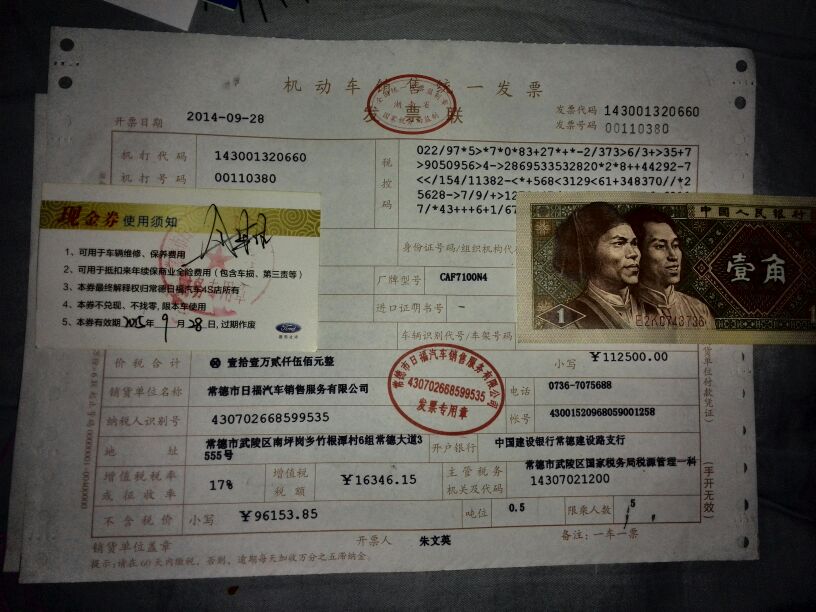 机动车销售统一发票
发票联
开票日期 2014-09-28
发票代码 143001320660
发票号码 00110380
机打代码 143001320660
机打号码 00110380
税控码
022/97*5>*7*0*83+27*+*-2/373>6/3+>35+7
>9050956>4->2869533532820*2*8++44292-7
<</154/11382-<*+568<3129<61+348370//*2
5628->7/9/+>12
7/*43+++6+1/67
现金券 使用须知
1、可用于车辆维修、保养费用
2、可用于抵扣来年续保商业全险费用（包含车损、第三责等）
3、本券最终解释权归常德日福汽车4S店所有
4、本券不兑现、不找零,限本车使用
5、本券有效期 2015年 9 月 28 日, 过期作废
Ford
中国人民银行
壹角
1
身份证号码/组织机构代
厂牌型号 CAF7100N4
进口证明书号 -
车辆识别代号/车架号码
价税合计 壹拾壹万贰仟伍佰元整 小写 ￥112500.00
销货单位名称 常德市日福汽车销售服务有限公司 电话 0736-7075688
纳税人识别号 430702668599535 帐号 43001520968059001258
常德市日福汽车销售服务有限公司
430702668599535
发票专用章
地址 常德市武陵区南坪岗乡竹根潭村6组常德大道3555号 开户银行 中国建设银行常德建设路支行
增值税税率或征收率 17% 增值税税额 ￥16346.15 主管税务机关及代码 常德市武陵区国家税务局税源管理一科 14307021200
不含税价 小写 ￥96153.85 吨位 0.5 限乘人数 5
销货单位盖章 开票人 朱文英 备注：一车一票
提示:请在60天内缴税，否则，逾期每天加收万分之五滞纳金.
(手开无效)